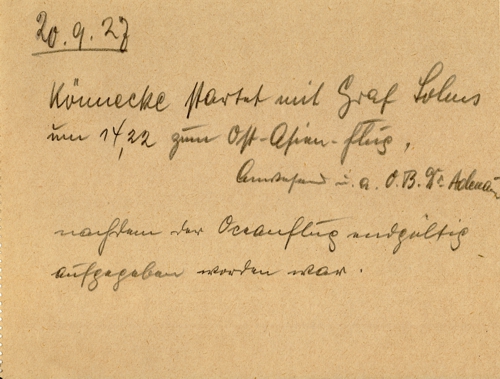 20.9.27
Könnecke startet mit Graf Solms
um 14,22 zum Ost-Asien-Flug,
Anwesend u. a. O.B. Dr. Adenau
nachdem der Oceanflug endgültig
aufgegeben worden war.